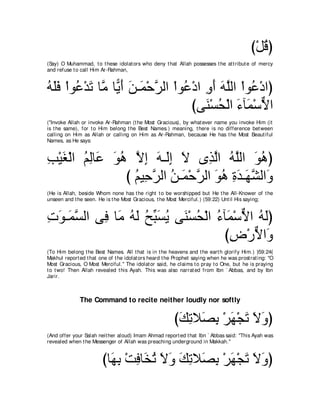 (قُلْ)
(Say) O Muhammad, to these idolators who deny that Allah possesses the attribute of mercy
and refuse to call Him Ar-Rahman,
(ادْعُواْ اللَّهَ أَوِ ادْعُواْ الرَّحْمَـنَ أَيًّا مَّا تَدْعُواْ فَلَهُ
الاٌّسْمَآءَ الْحُسْنَى)
("Invoke Allah or invoke Ar-Rahman (the Most Gracious), by whatever name you invoke Him (it
is the same), for to Him belong the Best Names.) meaning, there is no difference between
calling on Him as Allah or calling on Him as Ar-Rahman, because He has the Most Beautiful
Names, as He says:
(هُوَ اللَّهُ الَّذِى لاَ إِلَـهَ إِلاَّ هُوَ عَالِمُ الْغَيْبِ
وَالشَّهَـدَةِ هُوَ الرَّحْمَـنُ الرَّحِيمُ )
(He is Allah, beside Whom none has the right to be worshipped but He the All-Knower of the
unseen and the seen. He is the Most Gracious, the Most Merciful.) (59:22) Until His saying;
(لَهُ الاٌّسْمَآءُ الْحُسْنَى يُسَبِّحُ لَهُ مَا فِى السَّمَـوَتِ
وَالاٌّرْضِ)
(To Him belong the Best Names. All that is in the heavens and the earth glorify Him.) (59:24)
Makhul reported that one of the idolators heard the Prophet saying when he was prostrating: "O
Most Gracious, O Most Merciful." The idolator said, he claims to pray to One, but he is praying
to two! Then Allah revealed this Ayah. This was also narrated from Ibn `Abbas, and by Ibn
Jarir.
The Command to recite neither loudly nor softly
(وَلاَ تَجْهَرْ بِصَلاَتِكَ)
(And offer your Salah neither aloud) Imam Ahmad reported that Ibn `Abbas said: "This Ayah was
revealed when the Messenger of Allah was preaching underground in Makkah."
(وَلاَ تَجْهَرْ بِصَلاَتِكَ وَلاَ تُخَافِتْ بِهَا)